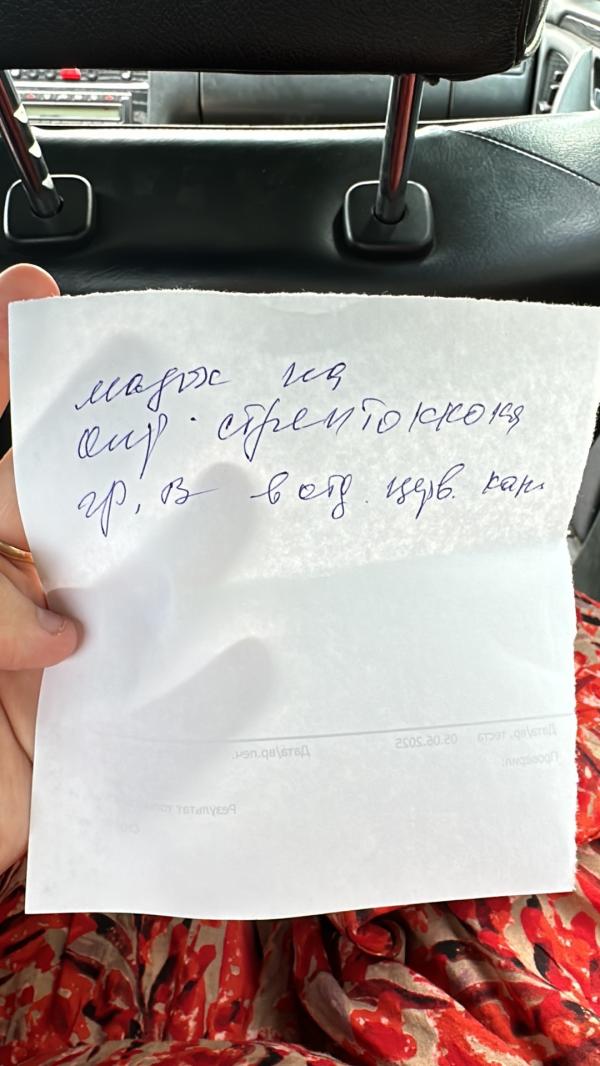 мазок на
опр. стрептоккока
гр. В в отд. церв. кан.
Дата/вр. теста 05.06.2025 Дата/вр.печ.
Проверил:
Результат